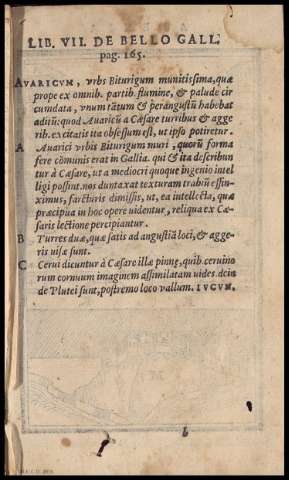 LIB. VII. DE BELLO GALL.
pag. 165.
AVARICVM, vrbs Biturigum munitissima, quæ
prope ex omnib. partib. flumine, & palude cir
cumdata, vnum tãtum & perangustũ habebat
aditũ: quod Auaricũ a Cæsare turribus & agge
rib. excitatis ita obsessum est, ut ipso potiretur.
A Auarici vrbis Biturigum muri, quorũ forma
fere cõmunis erat in Gallia. qui & ita describun
tur à Cæsare, ut a mediocri quoque ingenio intel
ligi possint. nos duntaxat texturam trabiũ effin-
ximus, farcturis dimissis, ut, ea intellecta, quæ
præcipua in hoc opere uidentur, reliqua ex Cæ-
saris lectione percipiantur.
B Turres duæ, quæ satis ad angustiã loci, & agge-
ris uisæ sunt.
C Cerui dicuntur à Cæsare illæ pinnę, quib. ceruino
rum cornuum imaginem assimilatam uides. dein
de Plutei sunt, postremo loco vallum. IVCVN.
b